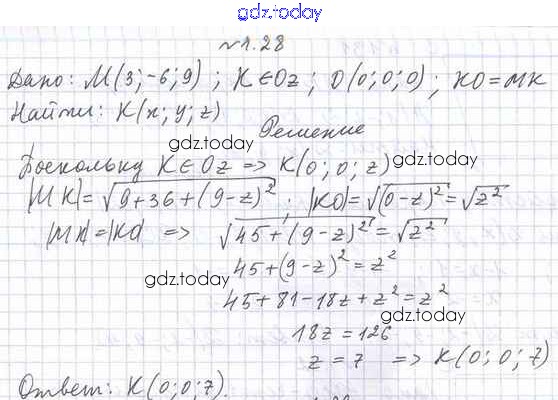 gdz.today
№1.28
Дано: M(3;-6;9); K∈Oz; O(0;0;0); KO=MK
Найти: K(x;y;z)
Решение
gdz.today
Поскольку K∈Oz => K(0;0;z)
gdz.today
|MK|=√(9+36+(9-z)²); |KO|=√((0-z)²)=√(z²)
|MK|=|KO| => √(45+(9-z)²)=√(z²)
45+(9-z)²=z²
gdz.today
45+81-18z+z²=z²
gdz.today
18z=126
z=7 => K(0;0;7)
Ответ: K(0;0;7).